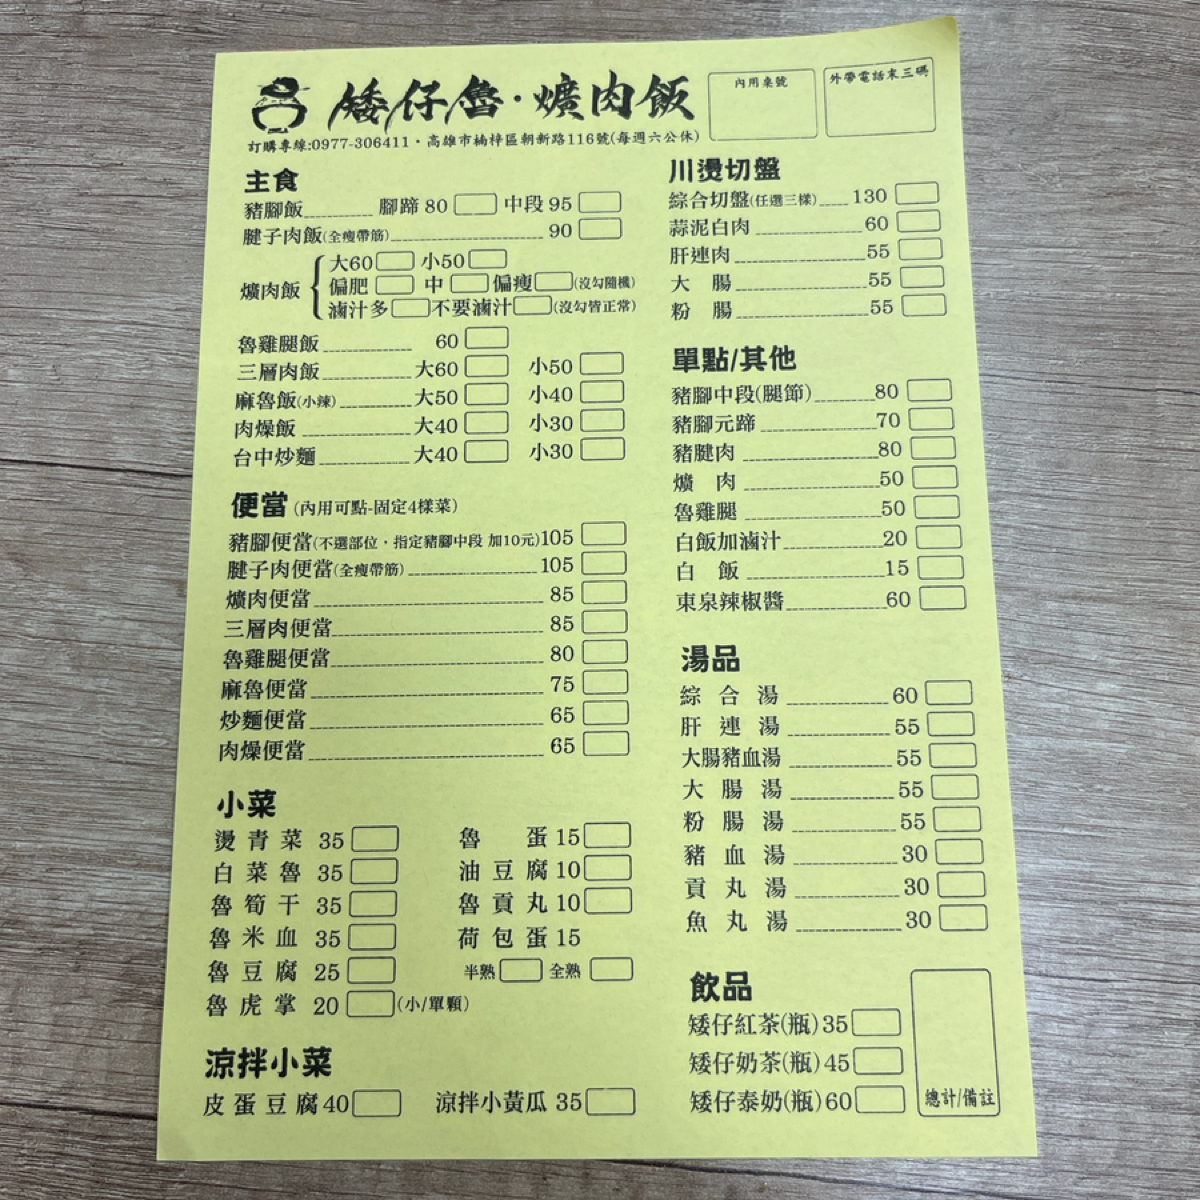 矮仔魯·爌肉飯
內用桌號
外帶電話末三碼
訂購專線:0977-306411·高雄市楠梓區朝新路116號(每週六公休)
主食
豬腳飯 腳蹄 80 中段 95
腱子肉飯(全瘦帶筋) 90
爌肉飯
大60 小50
偏肥 中 偏瘦 (沒勾隨機)
滷汁多 不要滷汁 (沒勾皆正常)
魯雞腿飯 60
三層肉飯 大60 小50
麻魯飯(小辣) 大50 小40
肉燥飯 大40 小30
台中炒麵 大40 小30
便當 (內用可點-固定4樣菜)
豬腳便當(不選部位·指定豬腳中段 加10元) 105
腱子肉便當(全瘦帶筋) 105
爌肉便當 85
三層肉便當 85
魯雞腿便當 80
麻魯便當 75
炒麵便當 65
肉燥便當 65
小菜
燙青菜 35 魯蛋 15
白菜魯 35 油豆腐 10
魯筍干 35 魯貢丸 10
魯米血 35 荷包蛋 15
魯豆腐 25 半熟 全熟
魯虎掌 20 (小/單顆)
涼拌小菜
皮蛋豆腐 40 涼拌小黃瓜 35
川燙切盤
綜合切盤(任選三樣) 130
蒜泥白肉 60
肝連肉 55
大腸 55
粉腸 55
單點/其他
豬腳中段(腿節) 80
豬腳元蹄 70
豬腱肉 80
爌肉 50
魯雞腿 50
白飯加滷汁 20
白飯 15
東泉辣椒醬 60
湯品
綜合湯 60
肝連湯 55
大腸豬血湯 55
大腸湯 55
粉腸湯 55
豬血湯 30
貢丸湯 30
魚丸湯 30
飲品
矮仔紅茶(瓶) 35
矮仔奶茶(瓶) 45
矮仔泰奶(瓶) 60
總計/備註